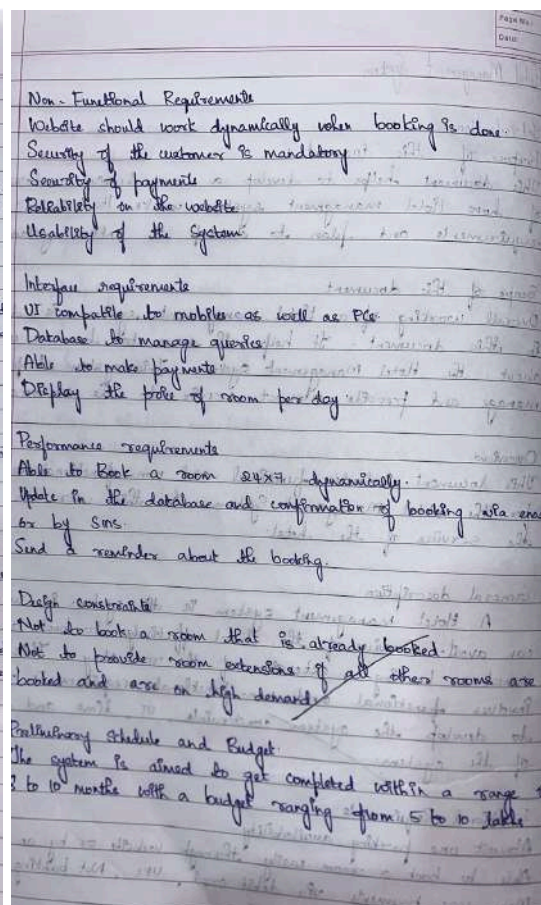 Page No.:
Date:
Non-Functional Requirements
Website should work dynamically when booking is done.
Security of the customer is mandatory
Security of payments
Reliability on the website
Usability of the System
Interface requirements
UI compatible to mobiles as well as PCs
Database to manage queries
Able to make payments
Display the price of room per day
Performance requirements
Able to Book a room 24x7 dynamically.
Update in the database and confirmation of booking via
or by sms.
Send a reminder about the booking.
Design constraints
Not to book a room that is already booked
Not to provide room extensions if all other rooms are
booked and are on high demand.
Preliminary Schedule and Budget.
The system is aimed to get completed within a range
to 10 months with a budget ranging from 5 to 10 lakhs